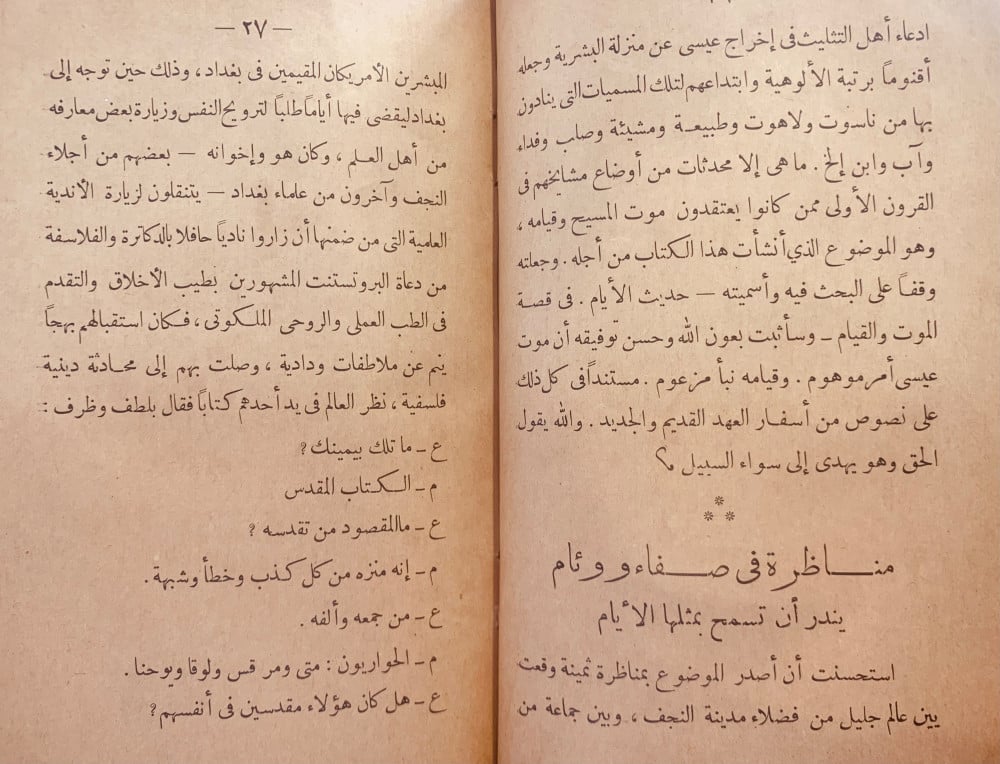 ادعاء أهل التثليث فى إخراج عيسى عن منزلة البشرية وجعله
أقنوماً برتبة الألوهية وابتداعهم لتلك المسميات التى ينادون
بها من ناسوت ولاهوت وطبيعة ومشيئة وصلب وفداء
وآب وابن إلخ . ماهى إلا محدثات من أوضاع مشايخهم فى
القرون الأولى ممن كانوا يعتقدون موت المسيح وقيامه ،
وهو الموضوع الذي أنشأت هذا الكتاب من أجله . وجعلته
وقفاً على البحث فيه وأسميته — حديث الأيام . فى قصة
الموت والقيام ــ وسأثبت بعون الله وحسن توفيقه أن موت
عيسى أمر موهوم . وقيامه نبأ مزعوم . مستنداً فى كل ذلك
على نصوص من أسفار العهد القديم والجديد . والله يقول
الحق وهو يهدى إلى سواء السبيل م؟
***
مناظرة فى صفاء ووئام
يندر أن تسمح بمثلها الأيام
استحسنت أن أصدر الموضوع بمناظرة ثمينة وقعت
بين عالم جليل من فضلاء مدينة النجف ، وبين جماعة من
— ٢٧ —
المبشرين الأمريكان المقيمين فى بغداد ، وذلك حين توجه إلى
بغداد ليقضى فيها أياماً طلباً لترويح النفس وزيارة بعض معارفه
من أهل العلم ، وكان هو وإخوانه — بعضهم من أجلاء
النجف وآخرون من علماء بغداد — يتنقلون لزيارة الأندية
العامية التى من ضمنها أن زاروا نادياً حافلا بالدكاترة والفلاسفة
من دعاة البروتستنت المشهورين بطيب الأخلاق والتقدم
فى الطب العملى والروحى الملكوتى ، فكان استقبالهم بهجاً
ينم عن ملاطفات ودادية ، وصلت بهم إلى محادثة دينية
فلسفية ، نظر العالم فى يد أحدهم كتاباً فقال بلطف وظرف :
ع ــ ما تلك بيمينك ؟
م ــ الكتاب المقدس
ع ــ ماالمقصود من تقدسه ؟
م ــ إنه منزه من كل كذب وخطأ وشبهة .
ع ــ من جمعه وألفه .
م ــ الحواريون : متى ومرقس ولوقا ويوحنا .
ع ــ هل كان هؤلاء مقدسين فى أنفسهم ؟